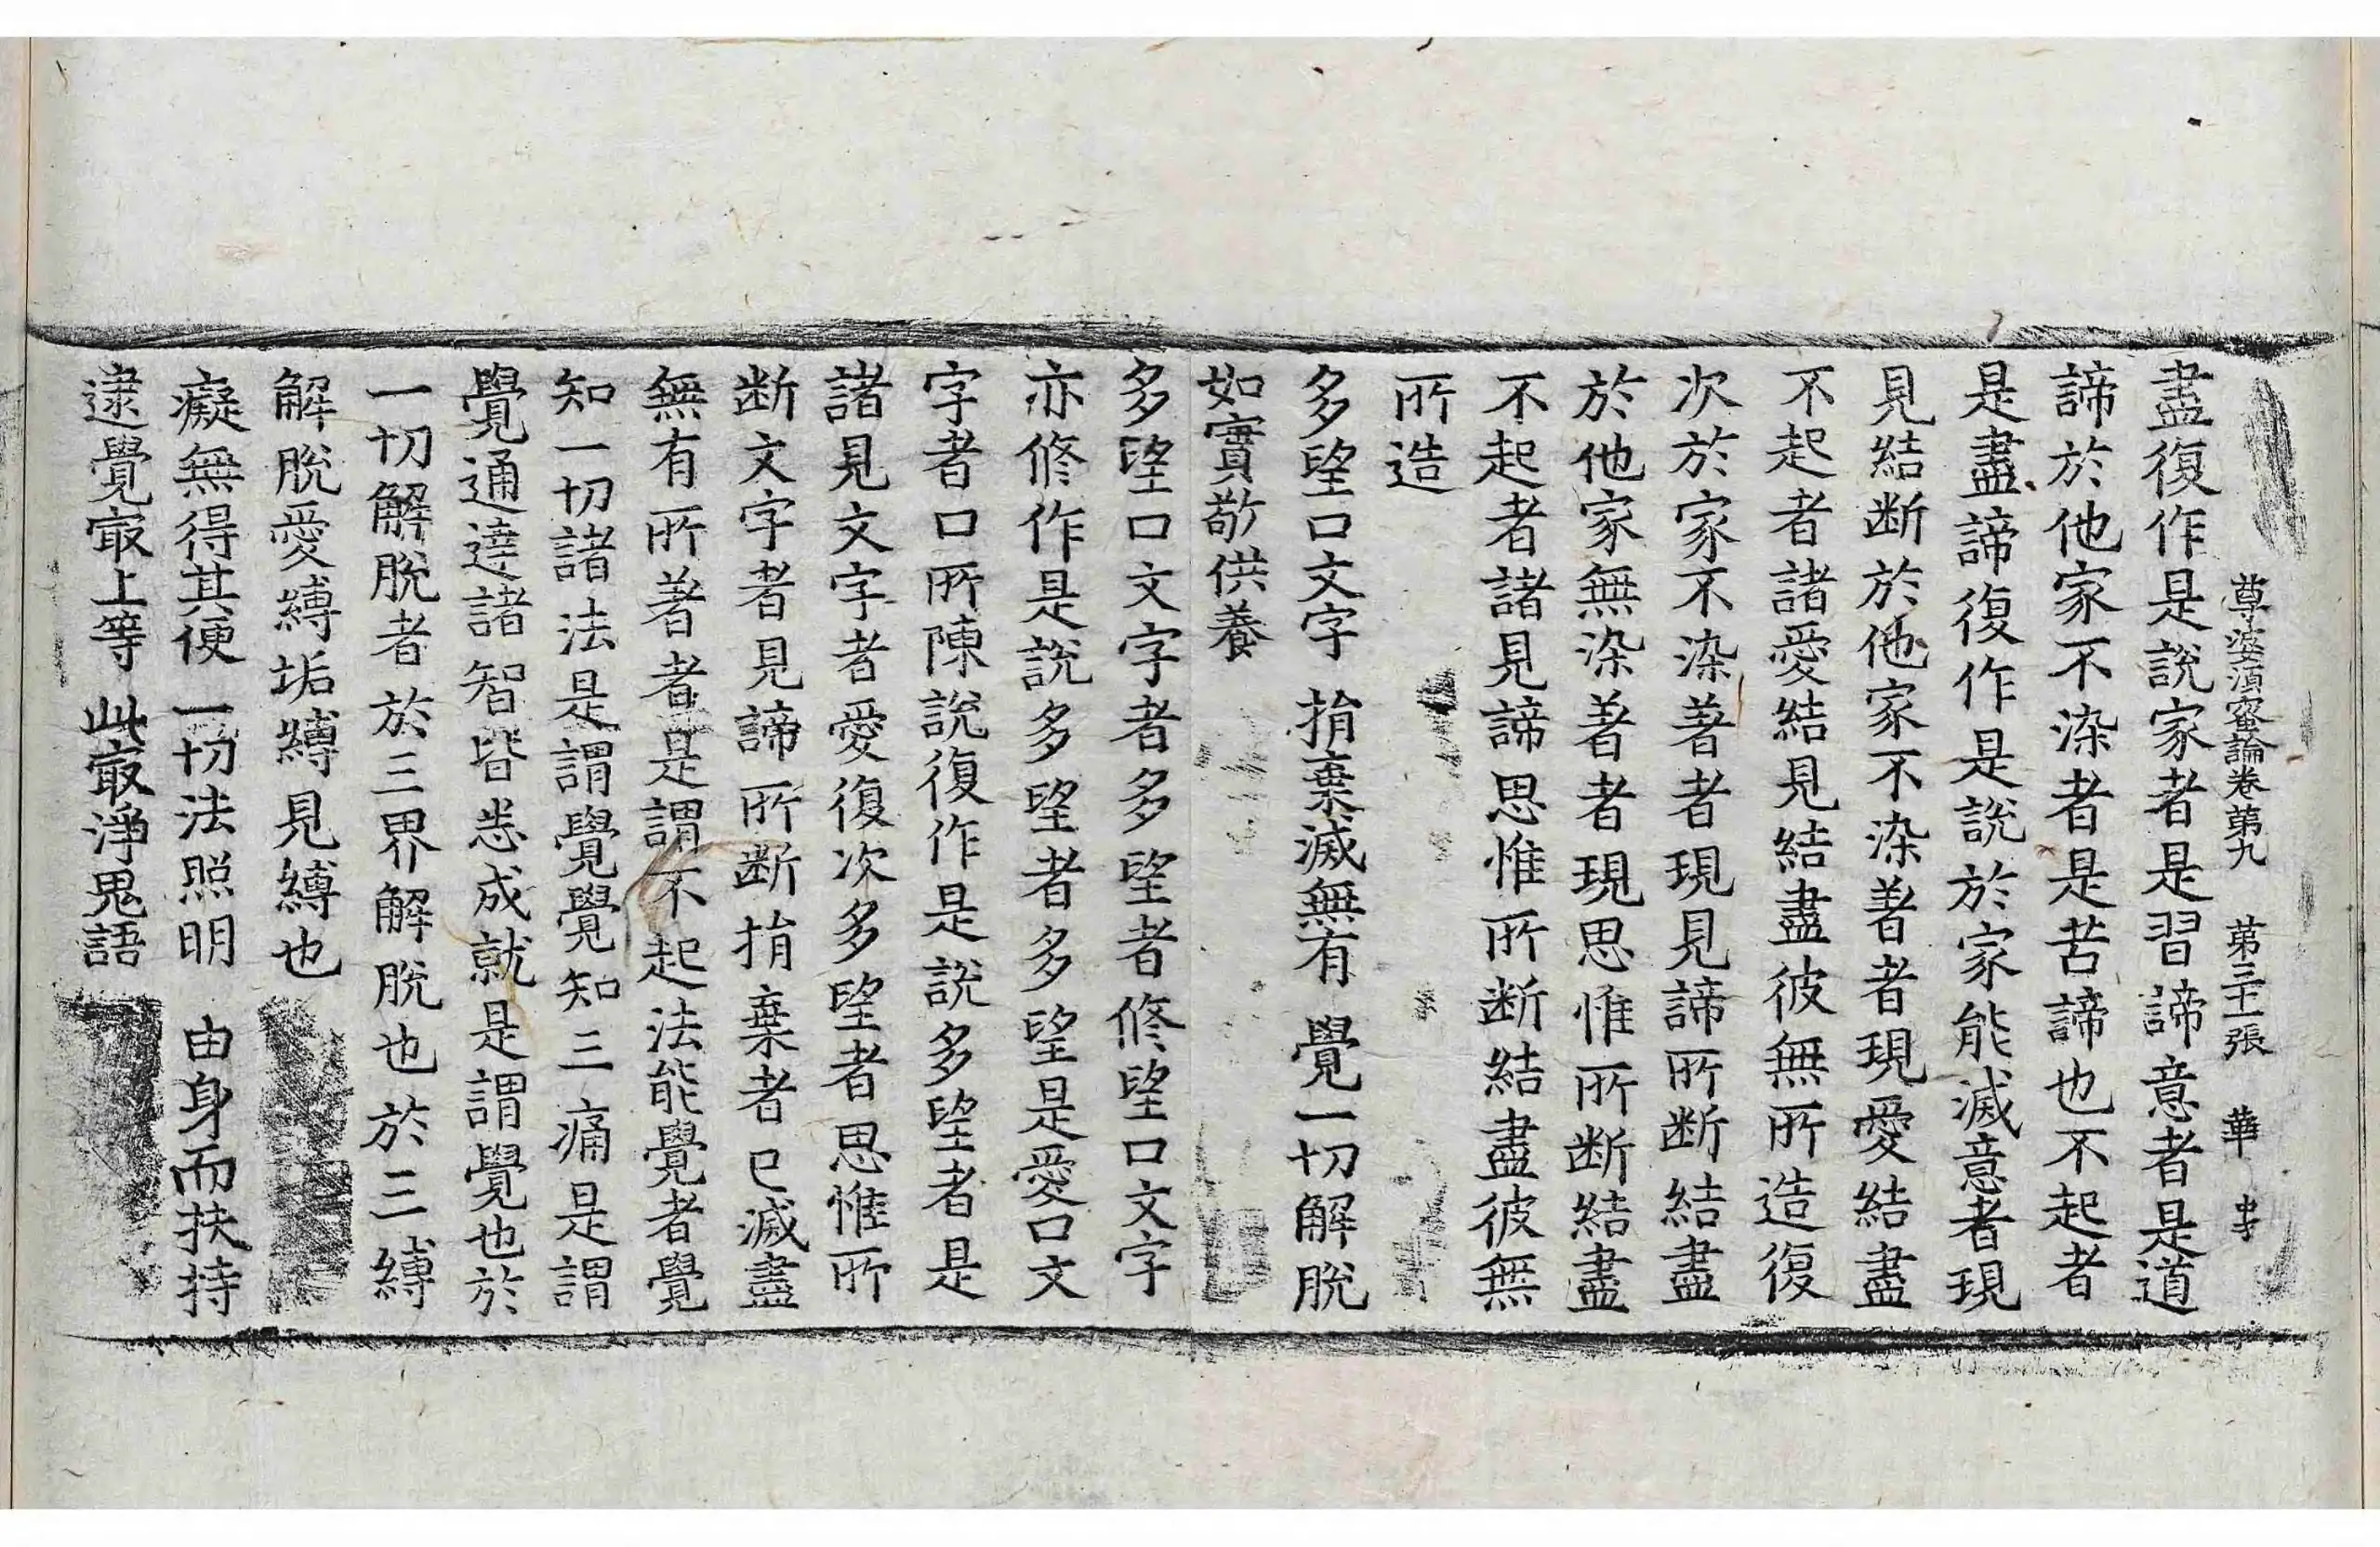 尊婆須蜜論卷第九　第三十張　華
盡復作是說家者是習諦意者是道
諦於他家不染者是苦諦也不起者
是盡諦復作是說於家能滅意者現
見結断於他家不染著者現愛結盡
不起者諸愛結見結盡彼無所造復
次於家不染著者現見諦所断結盡
於他家無染著者現思惟所断結盡
不起者諸見諦思惟所断結盡彼無
所造
多望口文字　捐棄滅無有　覺一切解脫
如實敬供養
多望口文字者多望者修望口文字
亦修作是說多望者多望是愛口文
字者口所陳說復作是說多望者是
諸見文字者愛復次多望者思惟所
断文字者見諦所断捐棄者已滅盡
無有所著者是謂不起法能覺者覺
知一切諸法是謂覺覺知三痛是謂
覺通達諸智皆悉成就是謂覺也於
一切解脫者於三界解脫也於三縛
解脫愛縛垢縛見縛也
癡無得其便　一切法照明　由身而扶持
逮覺㝡上等　此㝡淨鬼語